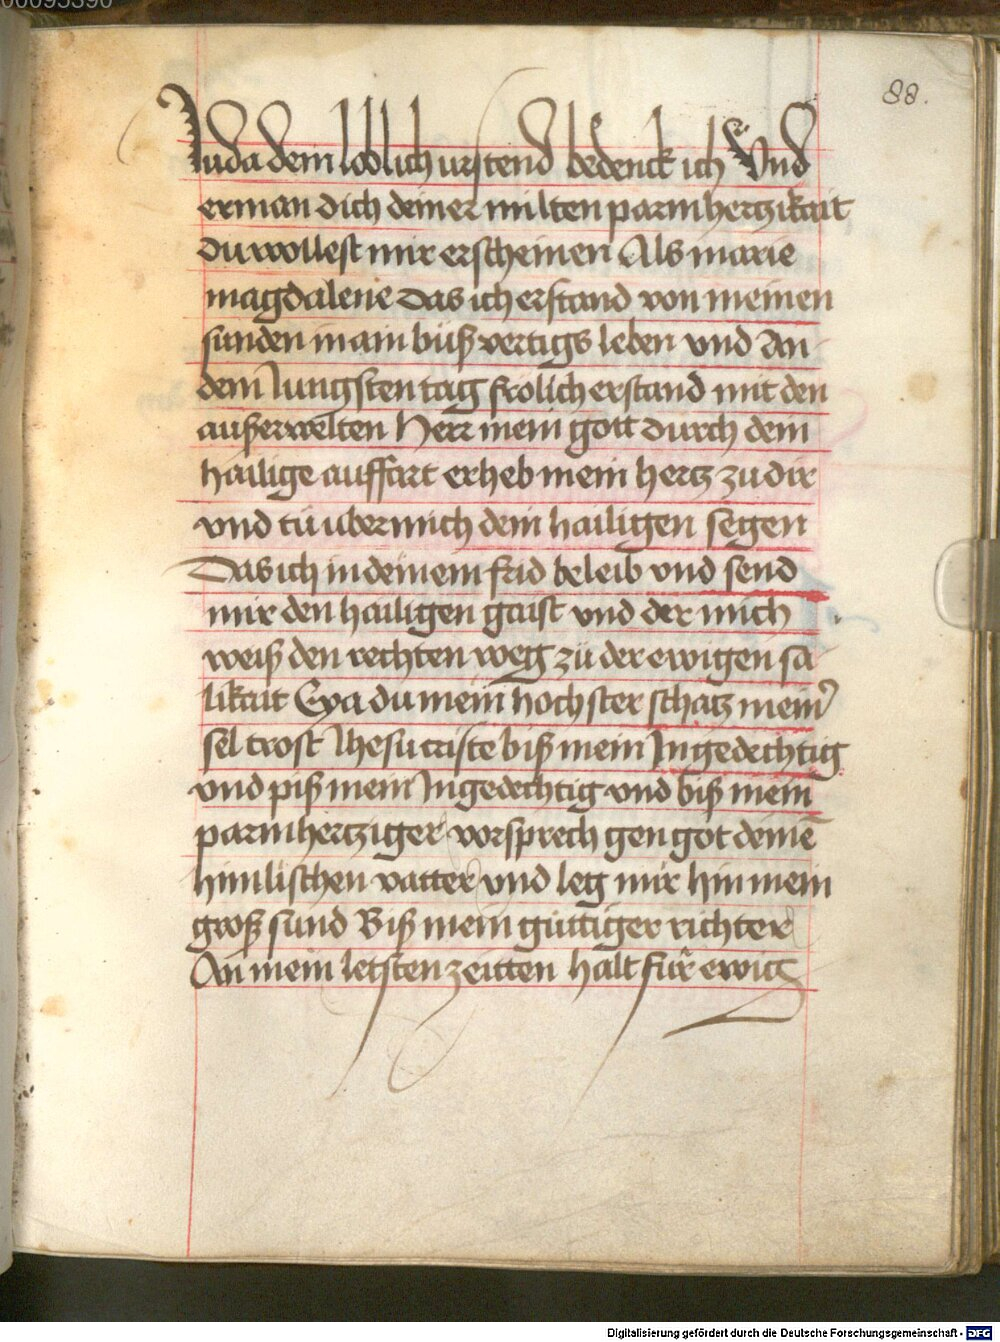 00095390
88.
Juda dein loblich urstend bedenck ich Und
erman dich deiner milten parmhertzikait
du wollest mir erscheinen Als marie
magdalene das ich erstand von meinen
sunden in ain büß vertigs leben und An
dem Jungsten tag frölich erstand mit den
außerwelten Herr mein gott durch dein
hailige auffart erheb mein hertz zu dir
und tü uber mich dein hailigen segen
Das ich in deinem frid beleib und send
mir den hailigen gaist und der mich
weiß den rechten weg zü der ewigen sä
likait Eya du mein hochster schatz meinr
sel trost Jhesu criste biß mein Ingedechtig
und piß mein Ingedechtig und biß mein
parmhertziger vorsprech gen got deinē
himlischen vatter und leg mir hin mein
groß sund Biß mein güttiger richter
An mein letsten zeitten halt für ewig
Digitalisierung gefördert durch die Deutsche Forschungsgemeinschaft - DFG